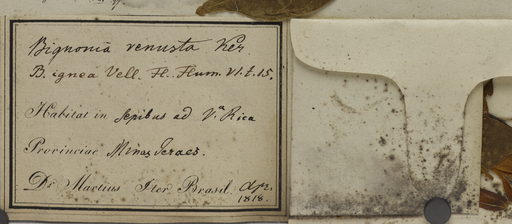 Bignonia venusta Ker
B. ignea Vell. Fl. Flum. VI. t. 15.
Habitat in sepibus ad V.a Rica
Provinciae Minas Geraes.
Dr Martius Iter Brasil. Apr.
1818.